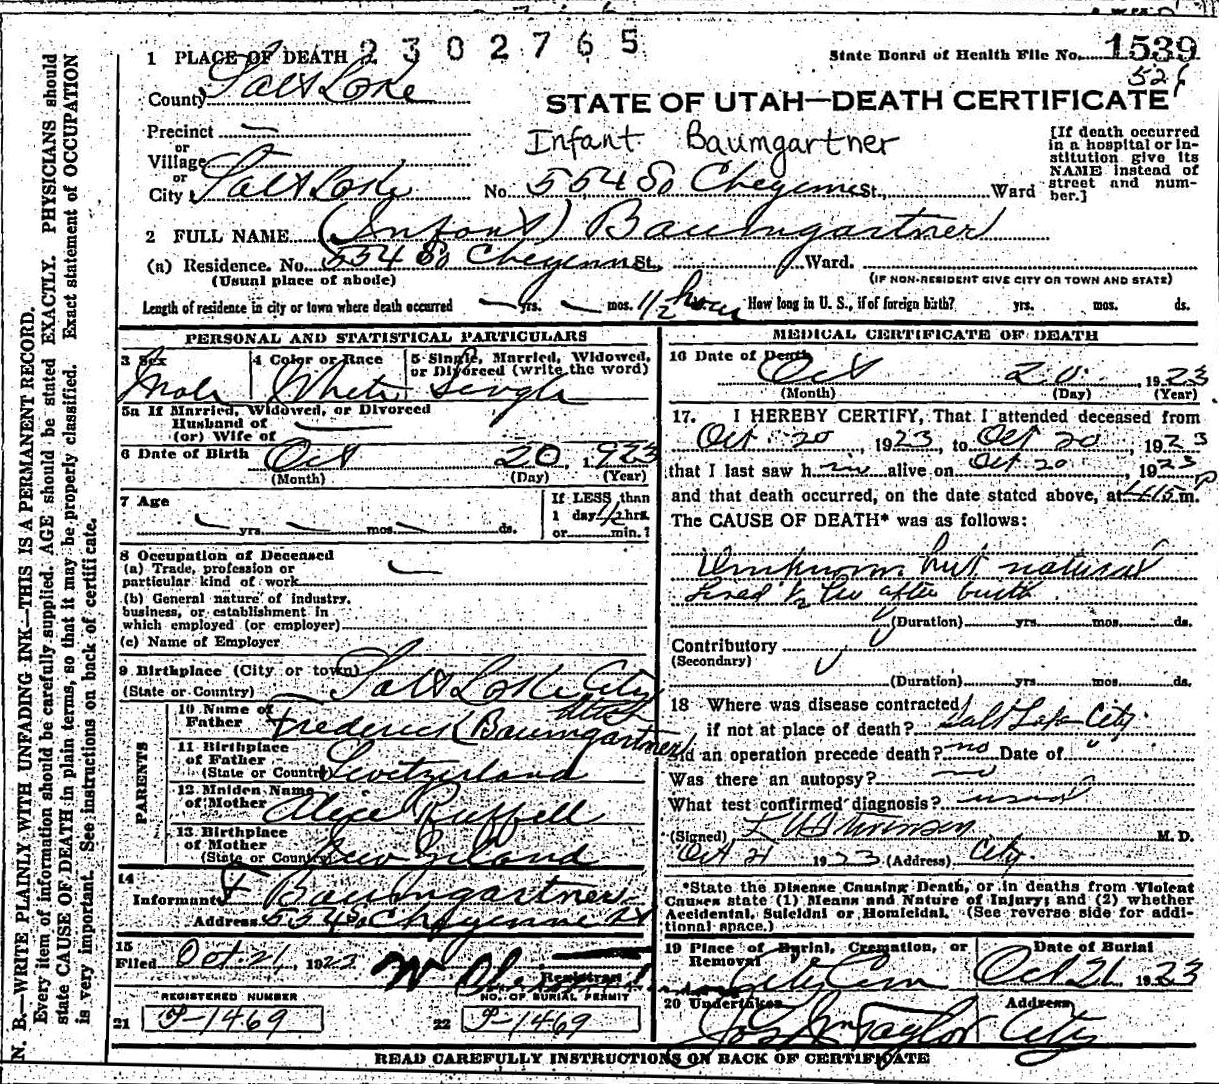 2302765
State Board of Health File No. 1539
526
1 PLACE OF DEATH
County Salt Lake
STATE OF UTAH—DEATH CERTIFICATE
Infant Baumgartner
Precinct —
or
Village
or
City Salt Lake No. 554 So Cheyenne St., Ward
[If death occurred in a hospital or institution give its NAME instead of street and number.]
2 FULL NAME (Infant) Baumgartner
(a) Residence. No. 554 So Cheyenne St., Ward.
(Usual place of abode) (IF NON-RESIDENT GIVE CITY OR TOWN AND STATE)
Length of residence in city or town where death occurred — yrs. — mos. 1/2 hour How long in U. S., if of foreign birth? yrs. mos. ds.
PERSONAL AND STATISTICAL PARTICULARS
3 Sex Male
4 Color or Race White
5 Single, Married, Widowed, or Divorced (write the word) Single
5a If Married, Widowed, or Divorced
Husband of
(or) Wife of —
6 Date of Birth Oct 20, 1923
(Month) (Day) (Year)
7 Age — yrs — mos — ds.
If LESS than
1 day 1/2 hrs.
or min.?
8 Occupation of Deceased
(a) Trade, profession or
particular kind of work —
(b) General nature of industry,
business, or establishment in
which employed (or employer)
(c) Name of Employer
9 Birthplace (City or town) Salt Lake City
(State or Country) Utah
PARENTS
10 Name of Father Frederick Baumgartner
11 Birthplace of Father (State or Country) Switzerland
12 Maiden Name of Mother Alice Ruffell
13 Birthplace of Mother (State or Country) New Zeland
14
Informant F Baumgartner
Address 554 So Cheyenne St
15
Filed Oct. 21, 1923
Registrar
REGISTERED NUMBER
21 P-1469
NO. OF BURIAL PERMIT
22 P-1469
MEDICAL CERTIFICATE OF DEATH
16 Date of Death Oct 20, 1923
(Month) (Day) (Year)
17. I HEREBY CERTIFY, That I attended deceased from
Oct. 20 1923, to Oct 20, 1923
that I last saw h im alive on Oct. 20, 1923
and that death occurred, on the date stated above, at 4:15 P m.
The CAUSE OF DEATH* was as follows:
Unknown but natural
Lived 1/2 hr after birth.
(Duration) yrs. mos. ds.
Contributory
(Secondary)
(Duration) yrs. mos. ds.
18 Where was disease contracted
if not at place of death? Salt Lake City.
Did an operation precede death? no Date of "
Was there an autopsy? no
What test confirmed diagnosis? usual
(Signed) M. D.
Oct 21 1923 (Address) City.
*State the Disease Causing Death, or in deaths from Violent
Causes state (1) Means and Nature of Injury; and (2) whether
Accidental, Suicidal or Homicidal. (See reverse side for additional space.)
19 Place of Burial, Cremation, or Removal City Cem
Date of Burial Oct 21 1923
20 Undertaker Jos Wm Taylor
Address City
READ CAREFULLY INSTRUCTIONS ON BACK OF CERTIFICATE
N. B.—WRITE PLAINLY WITH UNFADING INK—THIS IS A PERMANENT RECORD.
Every item of information should be carefully supplied. AGE should be stated EXACTLY. PHYSICIANS should
state CAUSE OF DEATH in plain terms, so that it may be properly classified. Exact statement of OCCUPATION
is very important. See instructions on back of certificate.